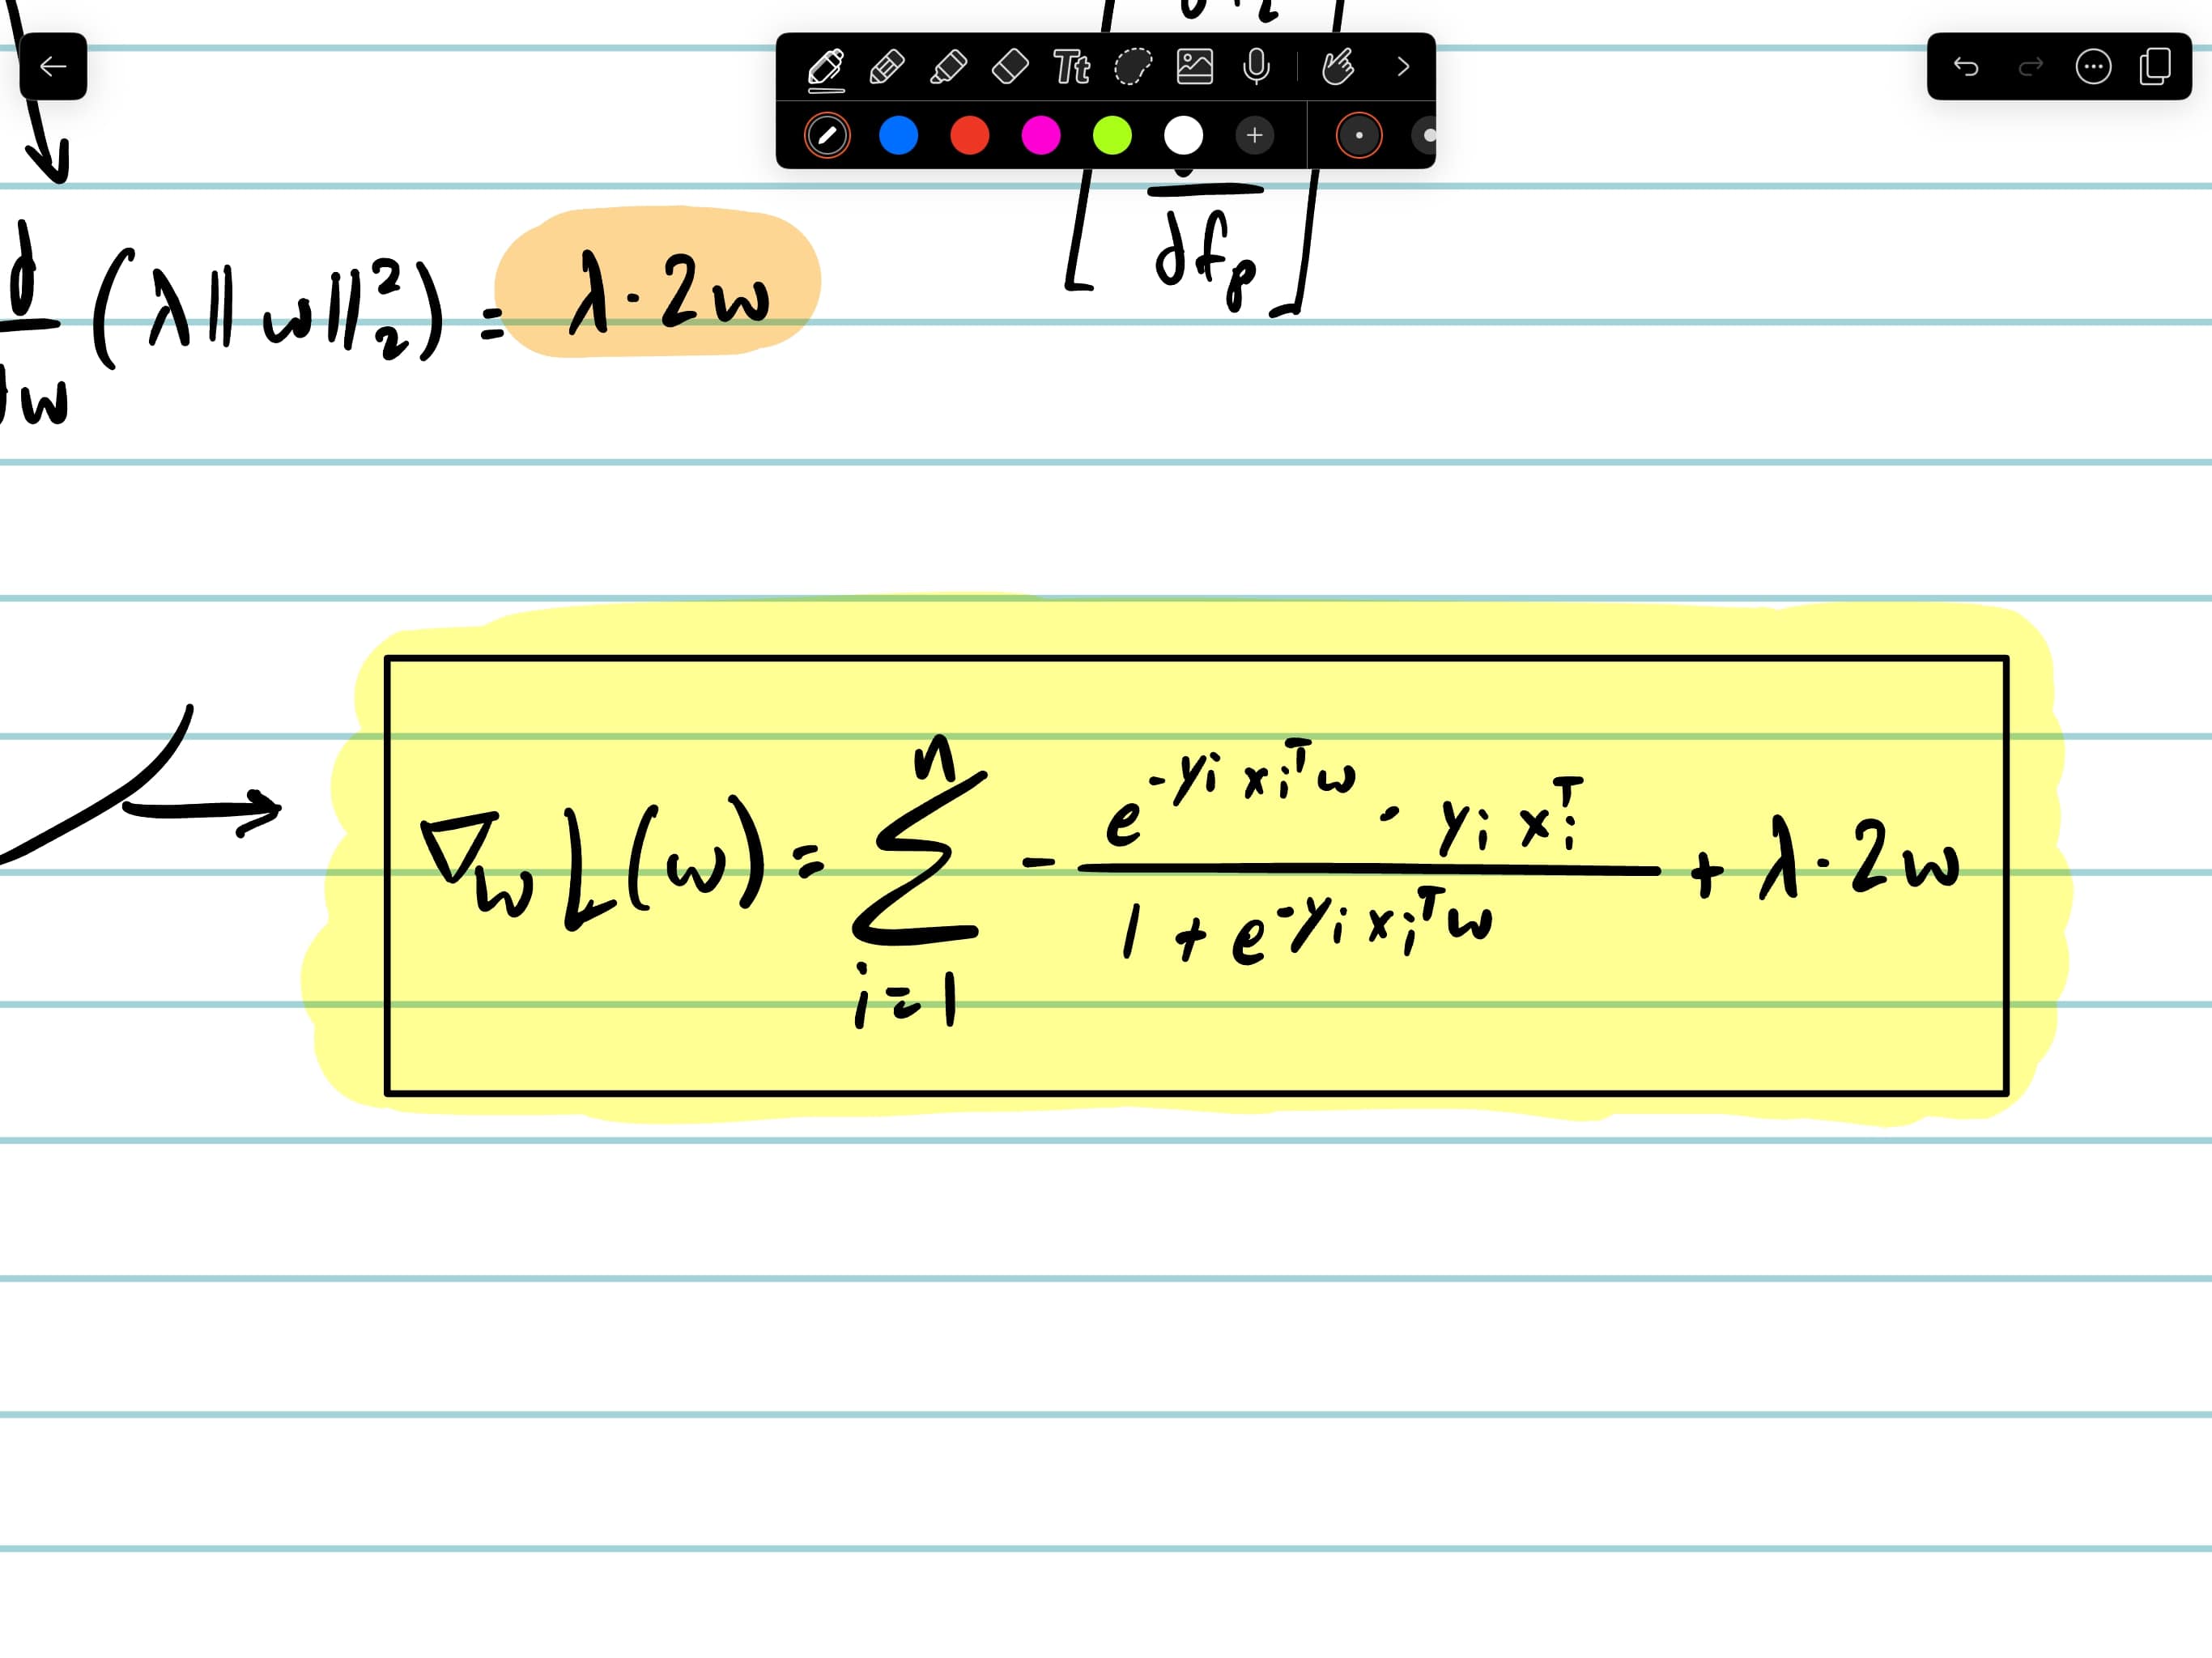 Tt
d/dw (λ||w||₂²) = λ · 2w
df_p
∇_w L(w) = Σ_{i=1}^{n} - (e^{-y_i x_i^T w} · y_i x_i^T) / (1 + e^{-y_i x_i^T w}) + λ · 2w